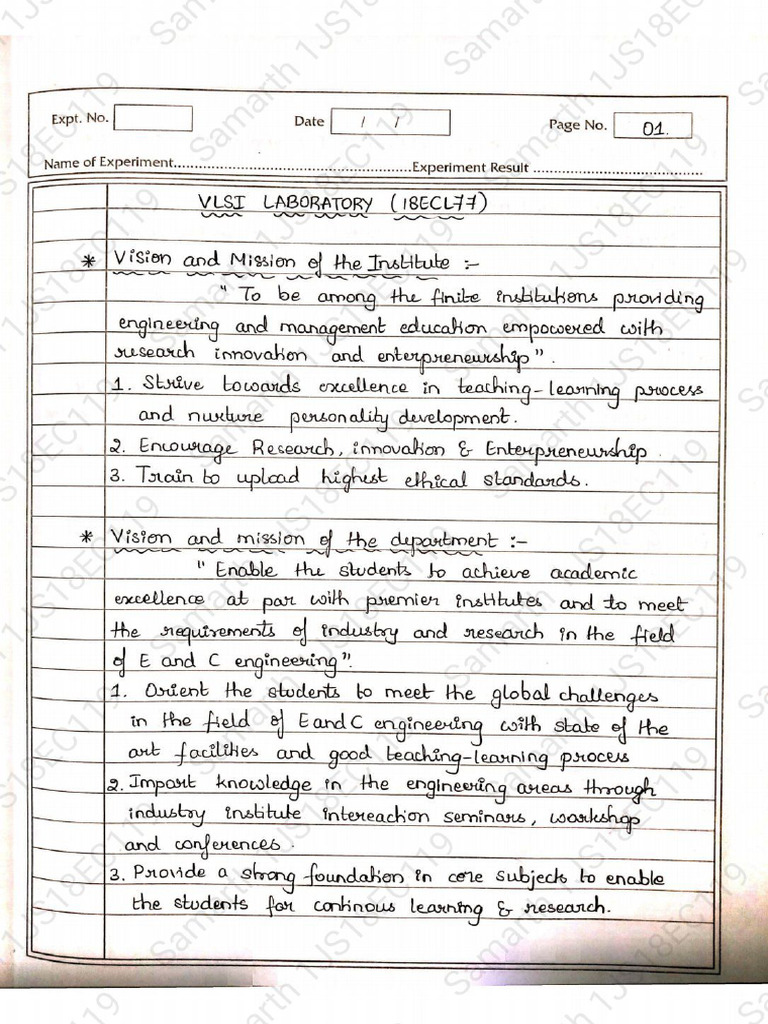 Expt. No.
Date / /
Page No. 01.
Name of Experiment.....................................................Experiment Result .......................................
VLSI LABORATORY (18ECL77)
* Vision and Mission of the Institute :-
" To be among the finite institutions providing
engineering and management education empowered with
research innovation and enterpreneurship".
1. Strive towards excellence in teaching-learning process
and nurture personality development.
2. Encourage Research, innovation & Enterpreneurship.
3. Train to upload highest ethical standards.
* Vision and mission of the department :-
" Enable the students to achieve academic
excellence at par with premier institutes and to meet
the requirements of industry and research in the field
of E and C engineering".
1. Orient the students to meet the global challenges
in the field of E and C engineering with state of the
art facilities and good teaching-learning process
2. Impart knowledge in the engineering areas through
industry institute intereaction seminars, workshop
and conferences.
3. Provide a strong foundation in core subjects to enable
the students for continous learning & research.
Samarth 1JS18EC119